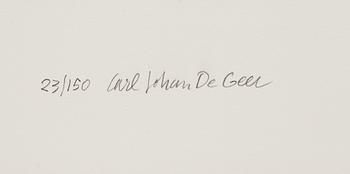 23/150 Carl Johan De Geer